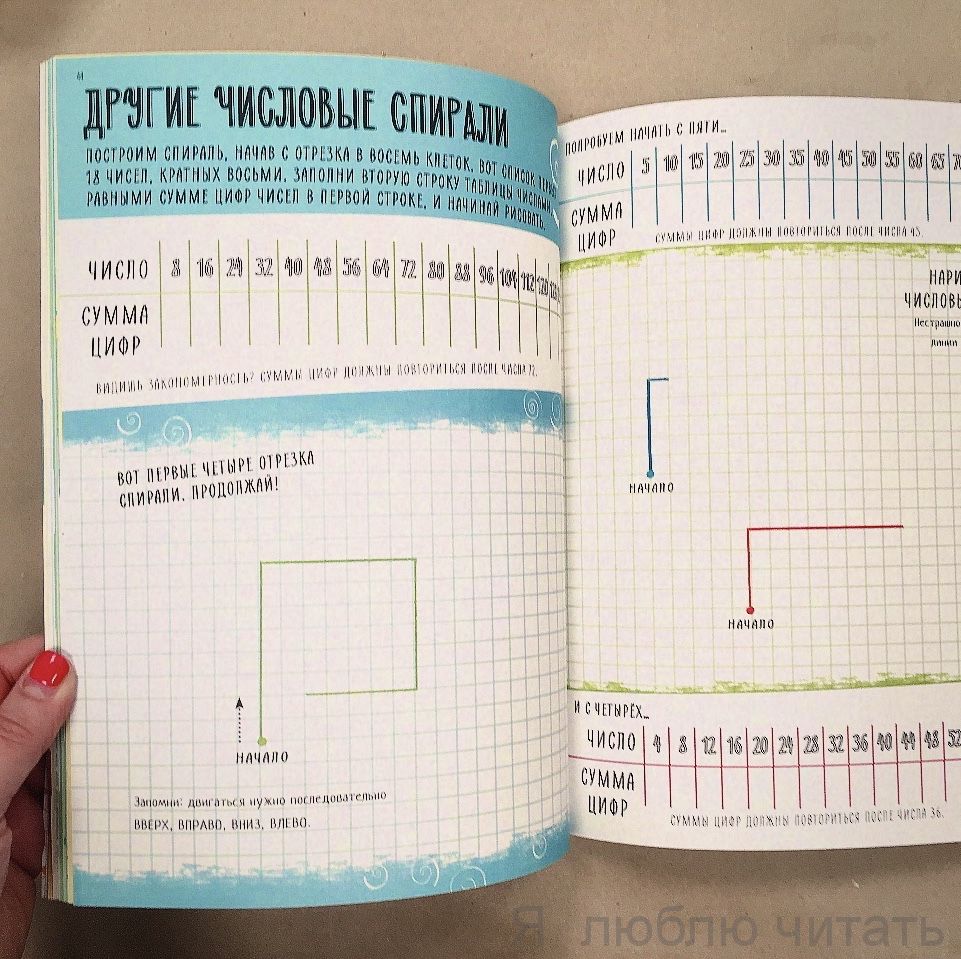 ДРУГИЕ ЧИСЛОВЫЕ СПИРАЛИ
ПОСТРОИМ СПИРАЛЬ, НАЧАВ С ОТРЕЗКА В ВОСЕМЬ КЛЕТОК. ВОТ СПИСОК
18 ЧИСЕЛ, КРАТНЫХ ВОСЬМИ. ЗАПОЛНИ ВТОРУЮ СТРОКУ ТАБЛИЦЫ ЧИСЛАМИ,
РАВНЫМИ СУММЕ ЦИФР ЧИСЕЛ В ПЕРВОЙ СТРОКЕ, И НАЧИНАЙ РИСОВАТЬ.
ЧИСЛО 8 16 24 32 40 48 56 64 72 80 88 96 104 112 120
СУММА
ЦИФР
ВИДИШЬ ЗАКОНОМЕРНОСТЬ? СУММЫ ЦИФР ДОЛЖНЫ ПОВТОРИТЬСЯ ПОСЛЕ ЧИСЛА 72.
ВОТ ПЕРВЫЕ ЧЕТЫРЕ ОТРЕЗКА
СПИРАЛИ. ПРОДОЛЖАЙ!
НАЧАЛО
Запомни: двигаться нужно последовательно
ВВЕРХ, ВПРАВО, ВНИЗ, ВЛЕВО.
ПОПРОБУЕМ НАЧАТЬ С ПЯТИ...
ЧИСЛО 5 10 15 20 25 30 35 40 45 50 55 60 65
СУММА
ЦИФР
СУММЫ ЦИФР ДОЛЖНЫ ПОВТОРИТЬСЯ ПОСЛЕ ЧИСЛА 45.
НАРИ
ЧИСЛОВЫ
Нестрашно
линии
НАЧАЛО
НАЧАЛО
И С ЧЕТЫРЁХ...
ЧИСЛО 4 8 12 16 20 24 28 32 36 40 44 48 52
СУММА
ЦИФР
СУММЫ ЦИФР ДОЛЖНЫ ПОВТОРИТЬСЯ ПОСЛЕ ЧИСЛА 36.
Я люблю читать